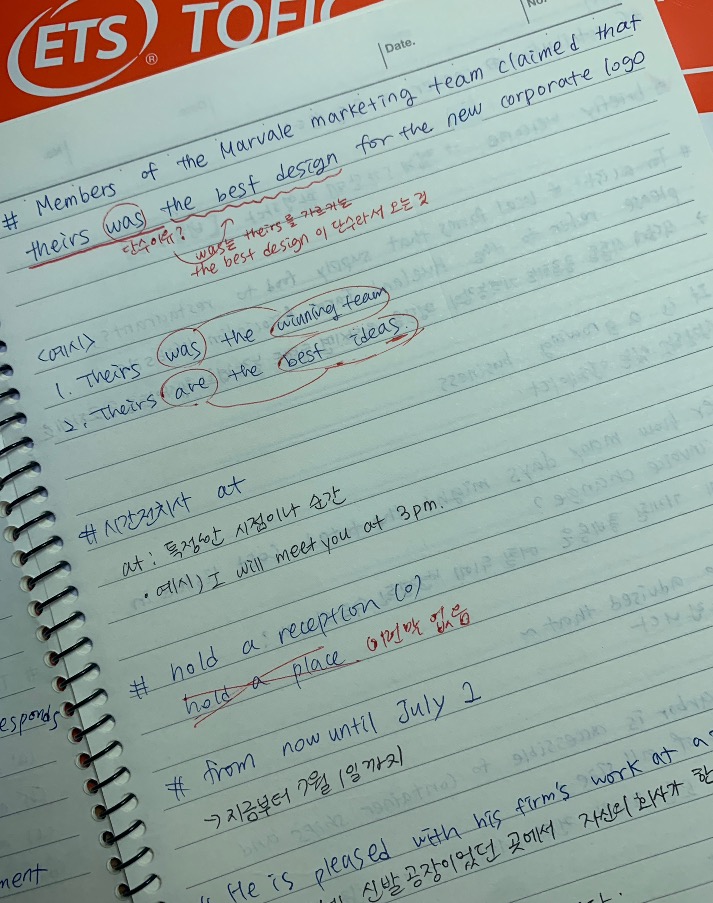 ETS® TOEIC
Date.
No.
# Members of the Marvale marketing team claimed that
theirs was the best design for the new corporate logo
단수이유?
was는 theirs를 가르키는
the best design 이 단수라서 오는 것
<예시>
1. Theirs was the winning team
2. Theirs are the best ideas.
# 시간전치사 at
at : 특정한 시점이나 순간
· 예시) I will meet you at 3pm.
# hold a reception (o)
hold a place 이런말 없음
# from now until July 1
→ 지금부터 7월 1일까지
He is pleased with his firm's work at a
신발공장이었던 곳에서 자신의 회사가 한
esponds
ment